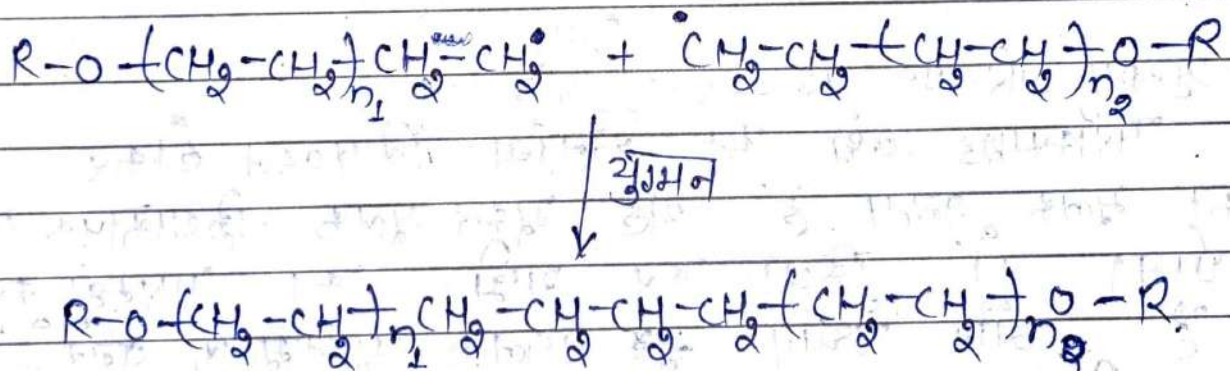 R-O-(CH₂-CH₂)n₁CH₂-CH₂• + •CH₂-CH₂-(CH₂-CH₂)n₂O-R
युग्मन
R-O-(CH₂-CH₂)n₁CH₂-CH₂-CH₂-CH₂-(CH₂-CH₂)n₂O-R.